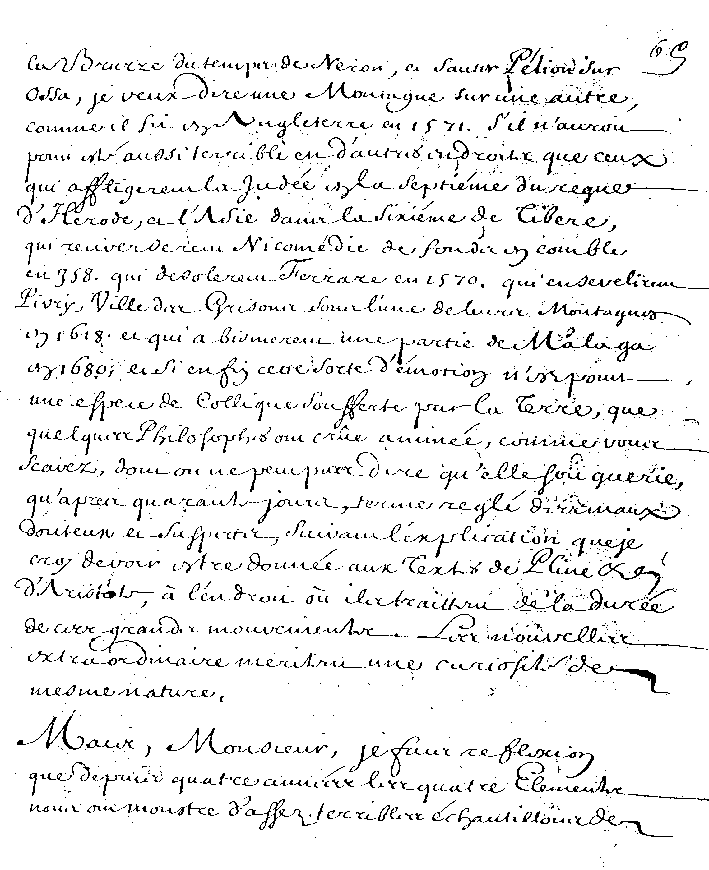 69
la Bruxe du temps de Neron, et sauter Pélion sur
Ossa, je veux dire une Montagne sur une autre,
comme il fit en Angleterre en 1571. S'il n'auroit
point esté aussi terrible en d'autres endroits que ceux
qui affligerent la Judée en la septiéme du regne
d'Herode, et l'Asie dans la sixiéme de Tibere,
qui renverserent Nicomédie de fonds en comble
en 358. qui desolerent Ferrare en 1570. qui ensevelirent
Pivry, Ville des Grisons sous l'une de leurs Montagnes
en 1618. et qui abismerent une partie de Malaga
en 1680, et si enfin cette sorte d'émotion n'est point
une espece de Collique soufferte par la Terre, que
quelques Philosophes ont crüe animée, comme vous
scavez, dont on ne peut pas dire qu'elle soit guerie,
qu'apres quarante jours, terme reglé des maux
douteux et suspects, suivant l'explication que je
croy devoir estre donnée aux Textes de Pline et
d'Aristote, à l'endroit où ils traittent de la durée
de ces grands mouvements. Les nouvelles
extraordinaires meritent une curiosité de
mesme nature.
Mais, Monsieur, je fais reflexion
que depuis quatre années les quatre Elements
nous ont monstre d'assez terribles échantillons de